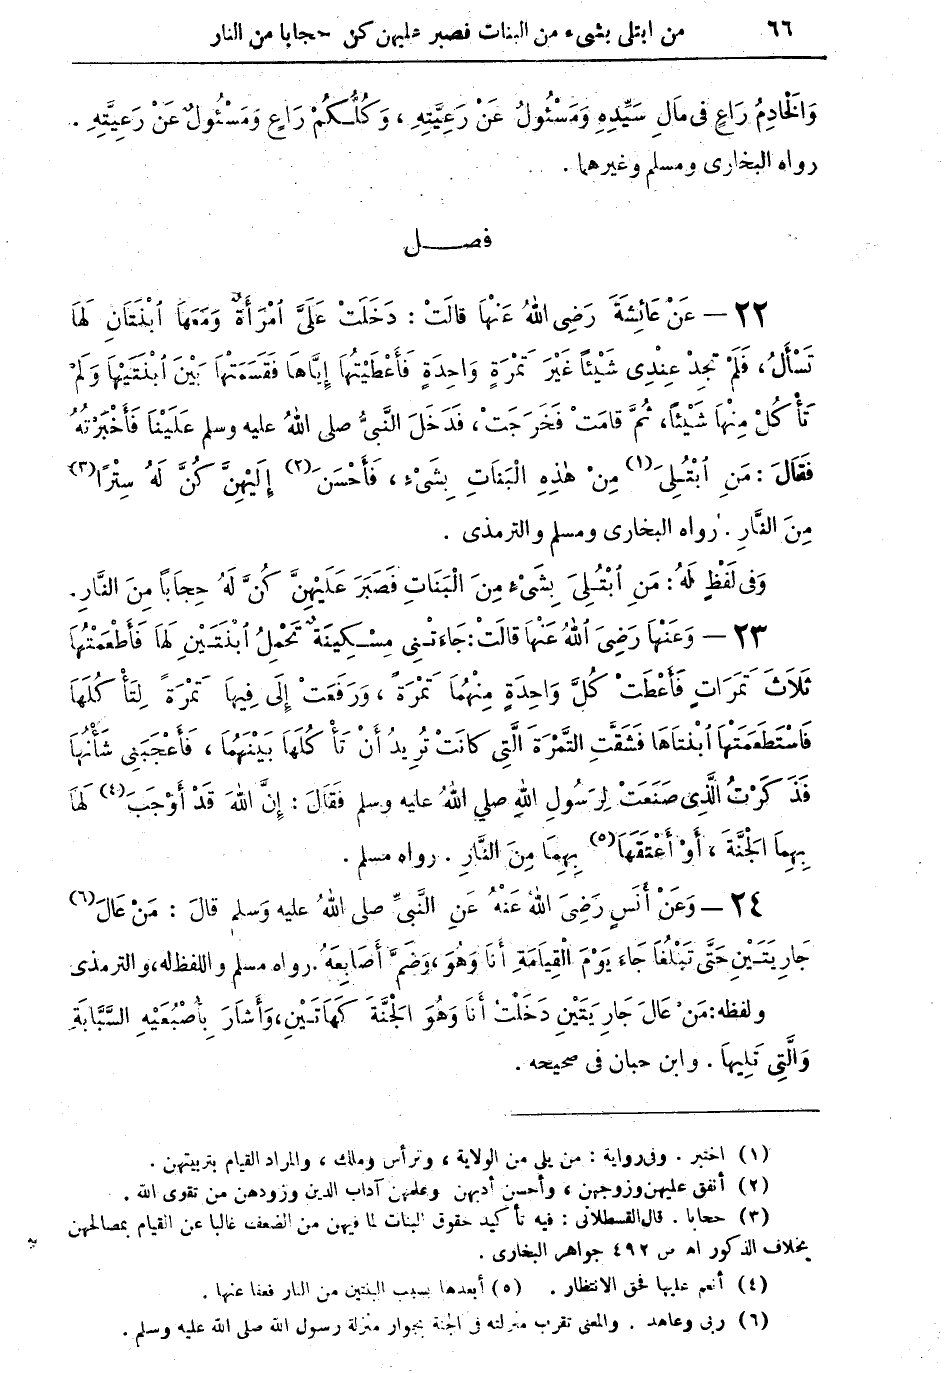 ٦٦ من ابتلى بشىء من البنات فصبر عليهن كن حجابا من النار
وَالْخَادِمُ رَاعٍ فى مَالِ سَيِّدِهِ وَمَسْئُولٌ عَنْ رَعِيَّتِهِ ، وَكُلُّكُمْ رَاعٍ وَمَسْئُولٌ عَنْ رَعِيَّتِهِ .
رواه البخارى ومسلم وغيرهما .
فصـــل
٢٢ – عَنْ عَائِشَةَ رَضِىَ اللهُ عَنْهَا قَالَتْ : دَخَلَتْ عَلَىَّ ٱمْرَأَةٌ وَمَعَهَا ٱبْنَتَانِ لَهَا
تَسْأَلُ ، فَلَمْ تَجِدْ عِنْدِى شَيْئًا غَيْرَ تَمْرَةٍ وَاحِدَةٍ فَأَعْطَيْتُهَا إِيَّاهَا فَقَسَمَتْهَا بَيْنَ ٱبْنَتَيْهَا وَلَمْ
تَأْكُلْ مِنْهَا شَيْئًا، ثُمَّ قَامَتْ فَخَرَجَتْ ، فَدَخَلَ النَّبِىُّ صلى اللهُ عليه وسلم عَلَيْنَا فَأَخْبَرْتُهُ
فَقَالَ : مَنِ ٱبْتُلِىَ(١) مِنْ هٰذِهِ الْبَنَاتِ بِشَىْءٍ ، فَأَحْسَنَ(٢) إِلَيْهِنَّ كُنَّ لَهُ سِتْرًا(٣)
مِنَ النَّارِ . رواه البخارى ومسلم والترمذى .
وَفى لَفْظٍ لَهُ : مَنِ ٱبْتُلِىَ بِشَىْءٍ مِنَ الْبَنَاتِ فَصَبَرَ عَلَيْهِنَّ كُنَّ لَهُ حِجَابًا مِنَ النَّارِ .
٢٣ – وَعَنْهَا رَضِىَ ٱللهُ عَنْهَا قَالَتْ : جَاءَتْنِى مِسْكِينَةٌ تَحْمِلُ ٱبْنَتَيْنِ لَهَا فَأَطْعَمْتُهَا
ثَلَاثَ تَمَرَاتٍ فَأَعْطَتْ كُلَّ وَاحِدَةٍ مِنْهُمَا تَمْرَةً ، وَرَفَعَتْ إِلَى فِيهَا تَمْرَةً لِتَأْكُلَهَا
فَاسْتَطْعَمَتْهَا ٱبْنَتَاهَا فَشَقَّتِ التَّمْرَةَ الَّتِى كَانَتْ تُرِيدُ أَنْ تَأْكُلَهَا بَيْنَهُمَا ، فَأَعْجَبَنِى شَأْنُهَا
فَذَكَرْتُ الَّذِى صَنَعَتْ لِرَسُولِ اللهِ صلى اللهُ عليه وسلم فَقَالَ : إِنَّ اللهَ قَدْ أَوْجَبَ(٤) لَهَا
بِهِمَا الْجَنَّةَ ، أَوْ أَعْتَقَهَا(٥) بِهِمَا مِنَ النَّارِ . رواه مسلم .
٢٤ – وَعَنْ أَنَسٍ رَضِىَ اللهُ عَنْهُ عَنِ النَّبِىِّ صلى اللهُ عليه وَسلم قالَ : مَنْ عَالَ(٦)
جَارِيَتَيْنِ حَتَّى تَبْلُغَا جَاءَ يَوْمَ الْقِيَامَةِ أَنَا وَهُوَ، وَضَمَّ أَصَابِعَهُ . رواه مسلم واللفظ له، والترمذى
ولفظه : مَنْ عَالَ جَارِيَتَيْنِ دَخَلْتُ أَنَا وَهُوَ الْجَنَّةَ كَهَاتَيْنِ، وَأَشَارَ بِأُصْبُعَيْهِ السَّبَّابَةِ
وَالَّتِى تَلِيهَا . وابن حبان فى صحيحه .
(١) اختبر . وفى رواية : من يلى من الولاية ، وترأس وملك ، والمراد القيام بتربيتهن .
(٢) أنفق عليهن وزوجهن ، وأحسن أدبهن وعلمهن آداب الدين وزودهن من تقوى الله .
(٣) حجابا . قال القسطلانى : فيه تأكيد حقوق البنات لما فيهن من الضعف غالبا عن القيام بمصالحهن
بخلاف الذكور اه ص ٤٩٢ جواهر البخارى .
(٤) أنعم عليها فحق الانتظار . (٥) أبعدها بسبب البنتين من النار فعفا عنها .
(٦) ربى وعاهد . والمعنى تقرب منزلته فى الجنة بجوار منزلة رسول الله صلى الله عليه وسلم .